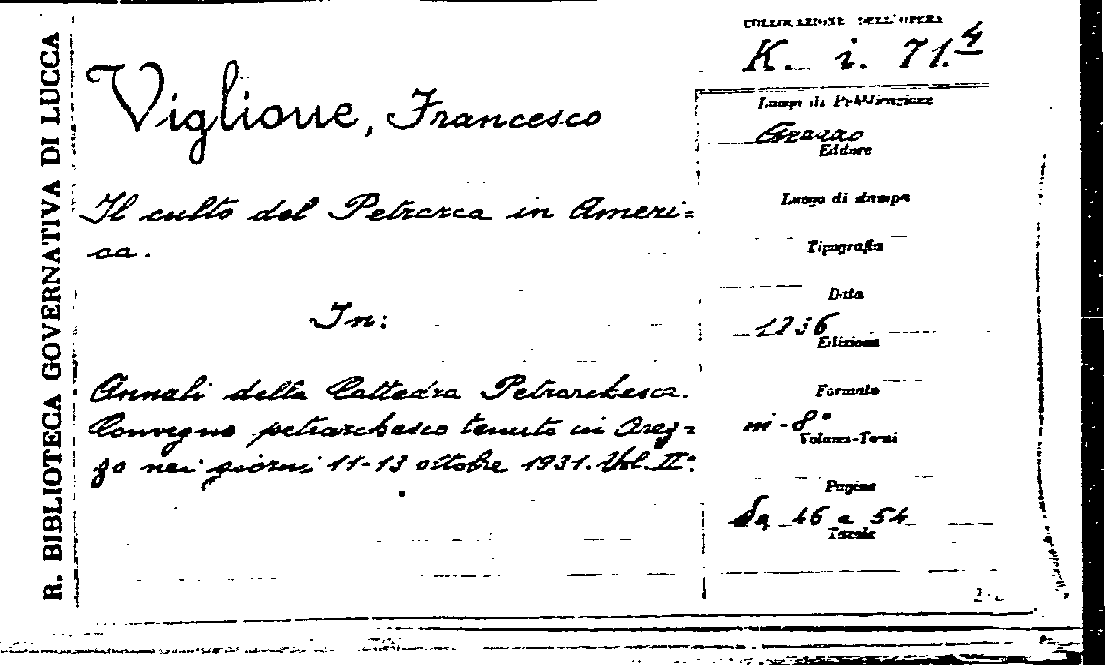 R. BIBLIOTECA GOVERNATIVA DI LUCCA
COLLOCAZIONE DELL'OPERA
K. i. 71.4
Viglione, Francesco
Il culto del Petrarca in Ameri=
ca.
In:
Annali della Cattedra Petrarchesca.
Convegno petrarchesco tenuto in Arez=
zo nei giorni 11-13 ottobre 1931. Vol. II°.
Luogo di Pubblicazione
Arezzo
Editore
Luogo di stampa
Tipografia
Data
Edizione
Formato
in-8°
Volumi-Tomi
Pagine
da 46 a 54
Tavole